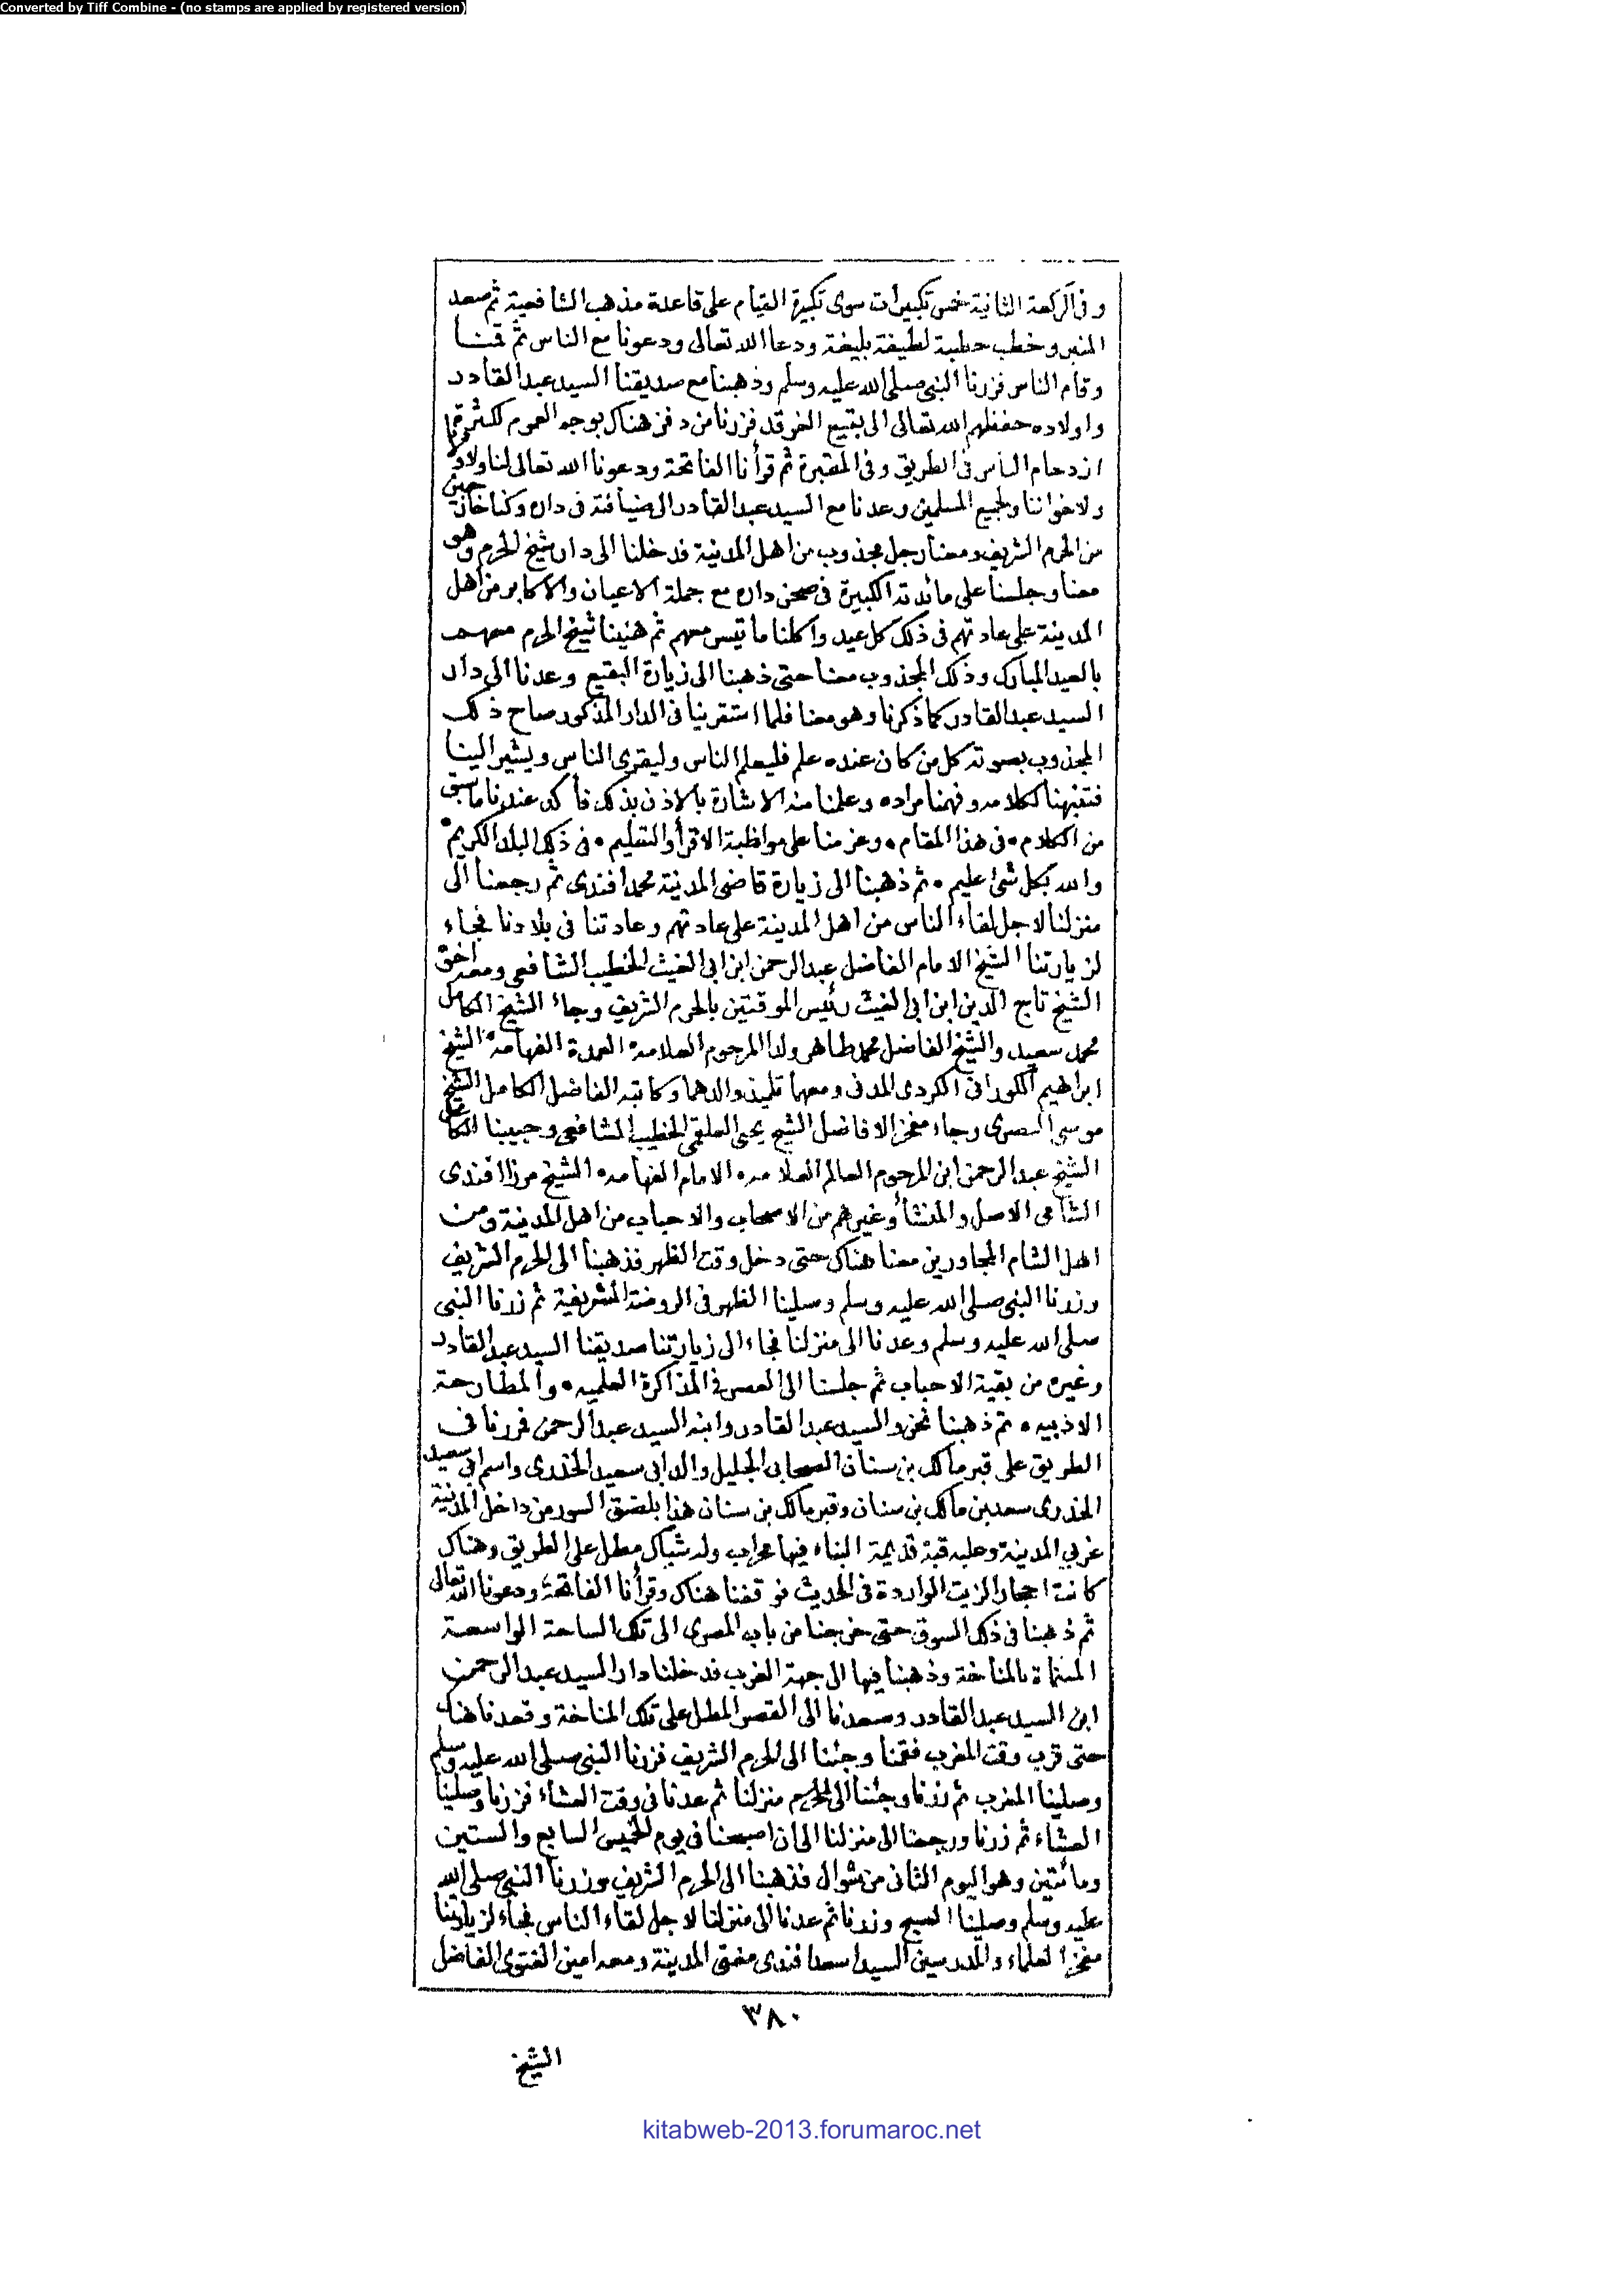 Converted by Tiff Combine - (no stamps are applied by registered version)
وفى الركعة الثانية خمس تكبيرات سوى تكبيرة القيام على قاعدة مذهب الشافعية ثم صعد
المنبر وخطب خطبة لطيفة بليغة ودعا الله تعالى ودعونا مع الناس ثم قمنا
وقام الناس فزرنا النبى صلى الله عليه وسلم وذهبنا مع صديقنا السيد عبد القادر
واولاده حفظهم الله تعالى الى بقيع الغرقد فزرنا من دفن هناك بوجه العموم لكثرة
ازدحام الناس فى الطريق وفى المقبرة ثم قرأنا الفاتحة ودعونا الله تعالى لنا ولاولادنا
ولاخواننا ولجميع المسلمين وعدنا مع السيد عبد القادر الى ضيافته فى داره وكنا حين
من الحرم الشريف ومعنا رجل مجذوب من اهل المدينة فدخلنا الى دار شيخ الحرم وهو
معنا وجلسنا على مائدته الكبيرة فى صحن داره مع جملة الاعيان والاكابر من اهل
المدينة على عادتهم فى ذلك كل عيد واكلنا ما تيسر معهم ثم هنينا شيخ الحرم معهم
بالعيد المبارك وذلك المجذوب معنا حتى ذهبنا الى زيارة البقيع وعدنا الى دار
السيد عبد القادر كما ذكرنا وهو معنا فلما استقرينا فى الدار المذكور صاح ذلك
المجذوب بصوته كل من كان عنده علم فليعلم الناس وليقرى الناس ويشير الينا
فتنبهنا لكلامه وفهمنا مراده وعلمنا منه الاشارة بالاذن بذلك فأكد عندنا ما سبق
من الكلام • فى هذا المقام • وعزمنا على مواظبة الاقرأ والتعليم • فى ذلك البلد الكريم •
والله بكل شئ عليم • ثم ذهبنا الى زيارة قاضى المدينة محمد افندى ثم رجعنا الى
منزلنا لاجل لقاء الناس من اهل المدينة على عادتهم وعادتنا فى بلادنا فجاء
لزيارتنا الشيخ الامام الفاضل عبد الرحمن ابن ابى الغيث الخطيب الشافعى ومعه
الشيخ تاج الدين ابن ابى الغيث رئيس الموقتين بالحرم الشريف وجاء الشيخ الكامل
محمد سعيد والشيخ الفاضل محمد طاهر ولدا المرحوم العلامه العمدة الفهامه الشيخ
ابراهيم الكورانى الكردى المدنى ومعهما تلميذ والدهما وكاتبه الفاضل الكامل الشيخ
موسى البصرى وجاء مفخر الافاضل الشيخ يحيى العلقمى الخطيب الشافعى وحبيبنا
الشيخ عبد الرحمن ابن المرحوم العالم العلامه الامام الفهامه الشيخ مرزا افندى
الشامى الاصل والمنشأ وغيرهم من الاصحاب والاحباب من اهل المدينة ومن
اهل الشام المجاورين معنا هناك حتى دخل وقت الظهر فذهبنا الى الحرم الشريف
وزرنا النبى صلى الله عليه وسلم وصلينا الظهر فى الروضة الشريفة ثم زرنا النبى
صلى الله عليه وسلم وعدنا الى منزلنا فجاء الى زيارتنا صديقنا السيد عبد القادر
وغيره من بقية الاحباب ثم جلسنا الى العصر فى المذاكرة العلميه • والمطارحة
الادبيه • ثم ذهبنا نحن والسيد عبد القادر وابنه السيد عبد الرحمن فمررنا فى
الطريق على قبر مالك بن سنان الصحابى الجليل والد ابى سعيد الخدرى واسم ابى سعيد
الخدرى سعد بن مالك بن سنان وقبر مالك بن سنان هذا بلصق السور من داخل المدينة
غربي المدينة وعليه قبة قديمة البناء فيها محراب وله شباك مطل على الطريق وهناك
كانت احجار الزيت الواردة فى الحديث فوقفنا هناك وقرأنا الفاتحة ودعونا الله تعالى
ثم ذهبنا فى ذلك السوق حتى خرجنا من باب المصرى الى تلك الساحة الواسعة
المسماة بالمناخة وذهبنا فيها الى جهة الغرب فدخلنا دار السيد عبد الرحمن
ابن السيد عبد القادر وصعدنا الى القصر المطل على تلك المناخة وقعدنا هناك
حتى قرب وقت المغرب فقمنا وجئنا الى الحرم الشريف فزرنا النبى صلى الله عليه وسلم
وصلينا المغرب ثم زرنا وجئنا الى الحرم منزلنا ثم عدنا فى وقت العشاء فزرنا وصلينا
العشاء ثم زرنا ورجعنا الى منزلنا الى ان اصبحنا فى يوم الخميس السابع والستين
ومأتين وهو اليوم الثانى من شوال فذهبنا الى الحرم الشريف وزرنا النبى صلى الله
عليه وسلم وصلينا الصبح وزرنا ثم عدنا الى منزلنا لاجل لقاء الناس فجاء لزيارتنا
مفخر العلماء والمدرسين السيد اسعد افندى مفتى المدينة ومعه امين الفتوى الفاضل
٣٨٠
الشيخ
kitabweb-2013.forumaroc.net